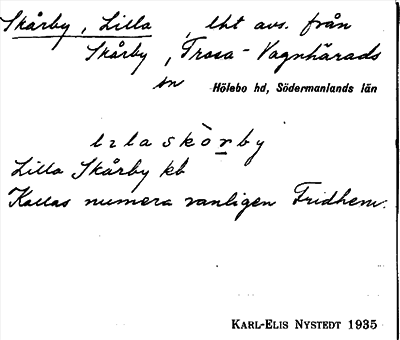 Skårby, Lilla, lht avs. från
Skårby, Trosa-Vagnhärads
sn Hölebo hd, Södermanlands län
lılaskòr̲by
Lilla Skårby kb
Kallas numera vanligen Fridhem.
KARL-ELIS NYSTEDT 1935